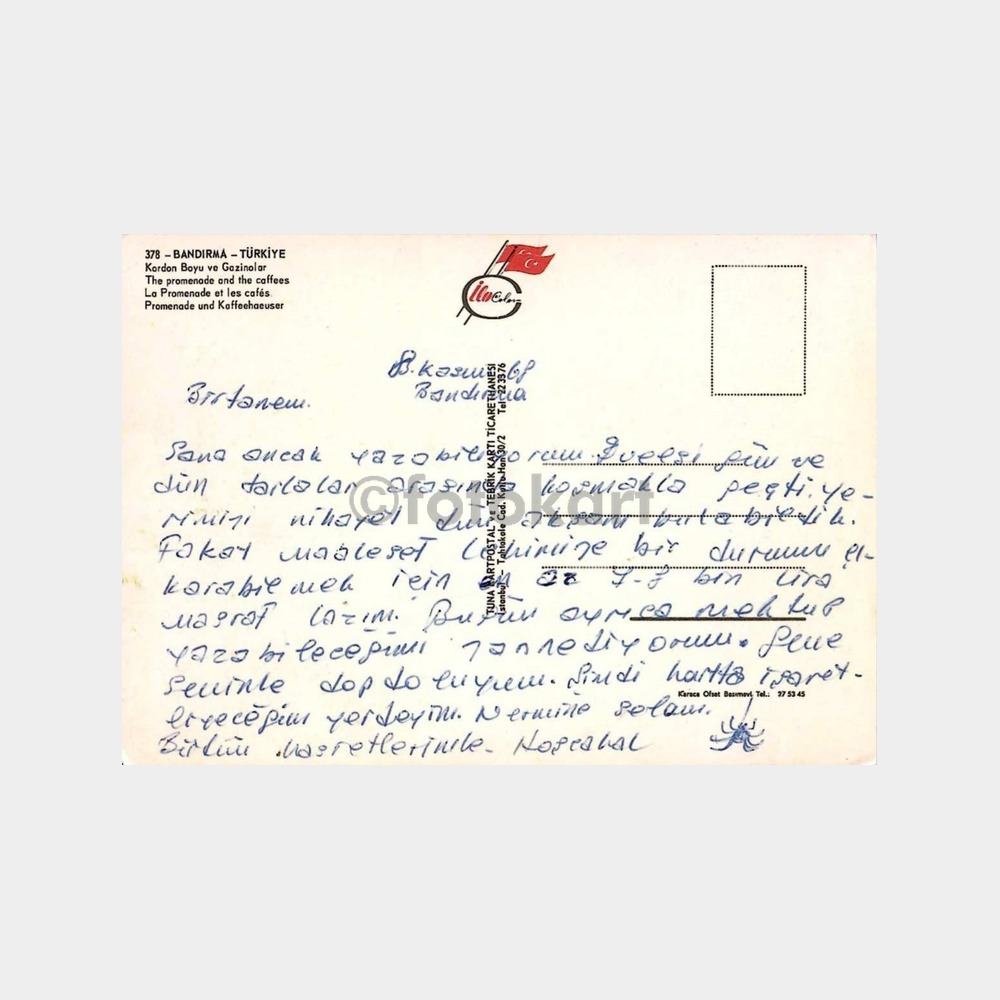 378 – BANDIRMA – TÜRKİYE
Kordon Boyu ve Gazinolar
The promenade and the caffees
La Promenade et les cafés
Promenade und Kaffeehaeuser
Color
TUNA KARTPOSTAL ve TEBRİK KARTI TİCARETHANESİ
İstanbul – Tahtakale Cad. Kutlu Han 30/2 Tel: 22 33 76
8. Kasım 68
Bandırma
Birtanem.
Sana ancak yazabiliyorum. Evvelsi gün ve
dün tarlalar arasında koşmakla geçti. Ye-
rimizi nihayet dün akşam bulabildik.
Fakat maalesef lehimize bir durum çı-
karabilmek için en az 7-8 bin lira
masraf lazım. Bugün ayrıca mektup
yazabileceğimi zannediyorum. Gene
seninle dopdoluyum. Şimdi hatta işaret-
leyeceğim yerdeyim. Nermine selam.
Bütün hasretlerimle. Hoşçakal
Karaca Ofset Basımevi Tel.: 27 53 45
©fotokart